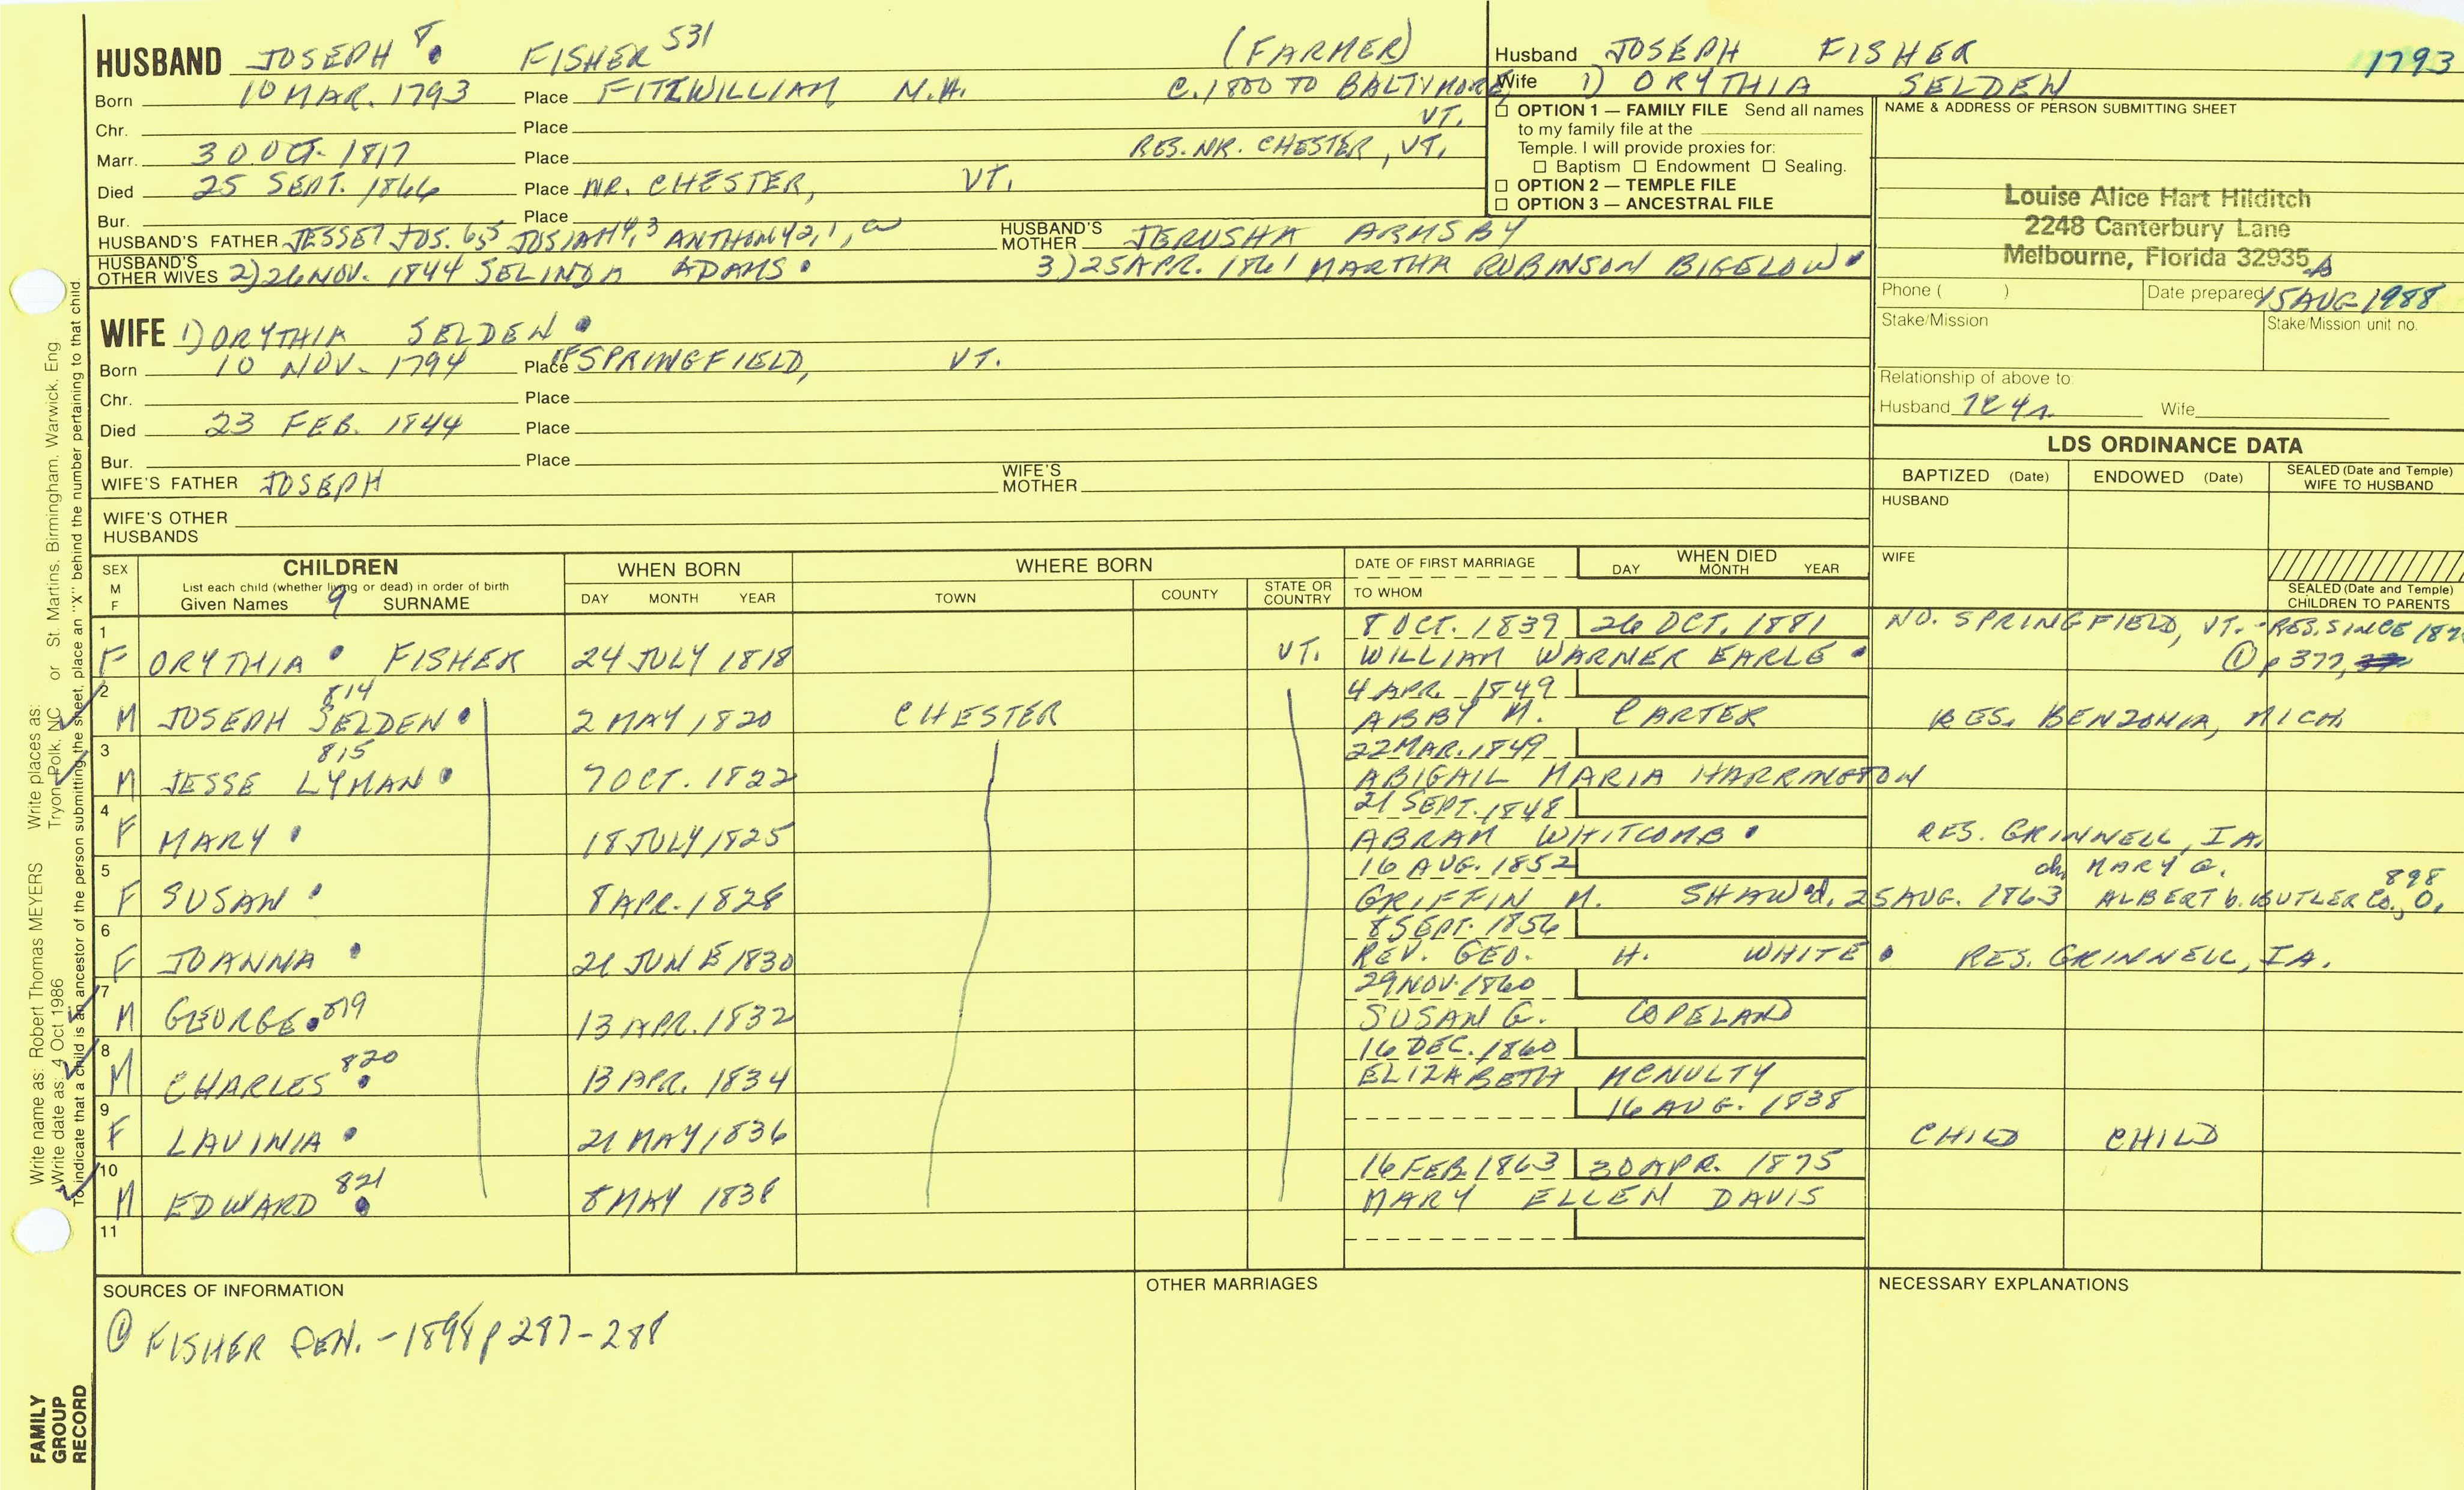 HUSBAND JOSEPH 8. FISHER 531 (FARMER)
Born 10 MAR. 1793 Place FITZWILLIAM N.H. C. 1800 TO BALTIMORE,
Chr. Place VT.
Marr. 30 OCT. 1817 Place RES. NR. CHESTER, VT.
Died 25 SEPT. 1866 Place NR. CHESTER, VT.
Bur. Place
HUSBAND'S FATHER JESSE7 JOS. 6,5 JOSIAH4,3 ANTHONY2,1, HUSBAND'S MOTHER JERUSHA ARMSBY
HUSBAND'S OTHER WIVES 2) 26 NOV. 1844 SELINDA ADAMS. 3) 25 APR. 1861 MARTHA ROBINSON BIGELOW.
Husband JOSEPH FISHER 1793
Wife 1) ORYTHIA SELDEN
☐ OPTION 1 — FAMILY FILE Send all names
to my family file at the
Temple. I will provide proxies for:
☐ Baptism ☐ Endowment ☐ Sealing.
☐ OPTION 2 — TEMPLE FILE
☐ OPTION 3 — ANCESTRAL FILE
NAME & ADDRESS OF PERSON SUBMITTING SHEET
Louise Alice Hart Hilditch
2248 Canterbury Lane
Melbourne, Florida 32935
Phone ( ) Date prepared 15 AUG 1988
Stake/Mission Stake/Mission unit no.
Relationship of above to:
Husband 1C4r. Wife
WIFE 1) ORYTHIA SELDEN.
Born 10 NOV. 1794 Place SPRINGFIELD, VT.
Chr. Place
Died 23 FEB. 1844 Place
Bur. Place
WIFE'S FATHER JOSEPH WIFE'S MOTHER
WIFE'S OTHER HUSBANDS
LDS ORDINANCE DATA
BAPTIZED (Date) ENDOWED (Date) SEALED (Date and Temple) WIFE TO HUSBAND
HUSBAND
WIFE
SEALED (Date and Temple) CHILDREN TO PARENTS
SEX M F CHILDREN WHEN BORN WHERE BORN DATE OF FIRST MARRIAGE WHEN DIED DAY MONTH YEAR
List each child (whether living or dead) in order of birth
Given Names 9 SURNAME DAY MONTH YEAR TOWN COUNTY STATE OR COUNTRY TO WHOM
1 8 OCT. 1839 26 OCT. 1881 NO. SPRINGFIELD, VT. - RES. SINCE
F ORYTHIA FISHER 24 JULY 1818 VT. WILLIAM WARNER EARLE. ① p 377,
2 814 4 APR. 1849
M JOSEPH SELDEN. 2 MAY 1820 CHESTER ABBY M. CARTER RES. BENZONIA, MICH.
3 815 22 MAR. 1849
M JESSE LYMAN. 7 OCT. 1822 ABIGAIL MARIA HARRINGTON
4 21 SEPT. 1848
F MARY. 18 JULY 1825 ABRAM WHITCOMB. RES. GRINNELL, IA.
5 16 AUG. 1852 ch. MARY G. 898
F SUSAN. 8 APR. 1828 GRIFFIN M. SHAW d. 25 AUG. 1863 ALBERT b. BUTLER CO., O.
6 8 SEPT. 1856
F JOANNA. 21 JUNE 1830 REV. GEO. H. WHITE. RES. GRINNELL, IA.
7 29 NOV. 1860
M GEORGE. 819 13 APR. 1832 SUSAN G. COPELAND
8 820 16 DEC. 1860
M CHARLES. 13 APR. 1834 ELIZABETH MCNULTY
9 16 AUG. 1838
F LAVINIA. 21 MAY 1836 CHILD CHILD
10 821 16 FEB. 1863 30 APR. 1875
M EDWARD. 8 MAY 1838 MARY ELLEN DAVIS
11
SOURCES OF INFORMATION OTHER MARRIAGES NECESSARY EXPLANATIONS
① FISHER GEN. - 1898 p 287-288
Write name as: Robert Thomas MEYERS Write places as: St. Martins, Birmingham, Warwick, Eng
Write date as: 4 Oct 1986 Tryon, Polk, NC or
To indicate that a child is an ancestor of the person submitting the sheet, place an "X" behind the number pertaining to that child.
FAMILY GROUP RECORD